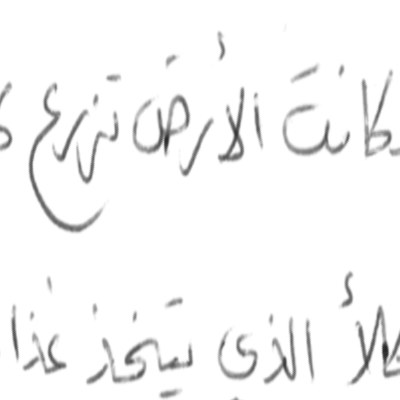 كانت الأرض تزرع
كلأ الذي يتخذ غذا